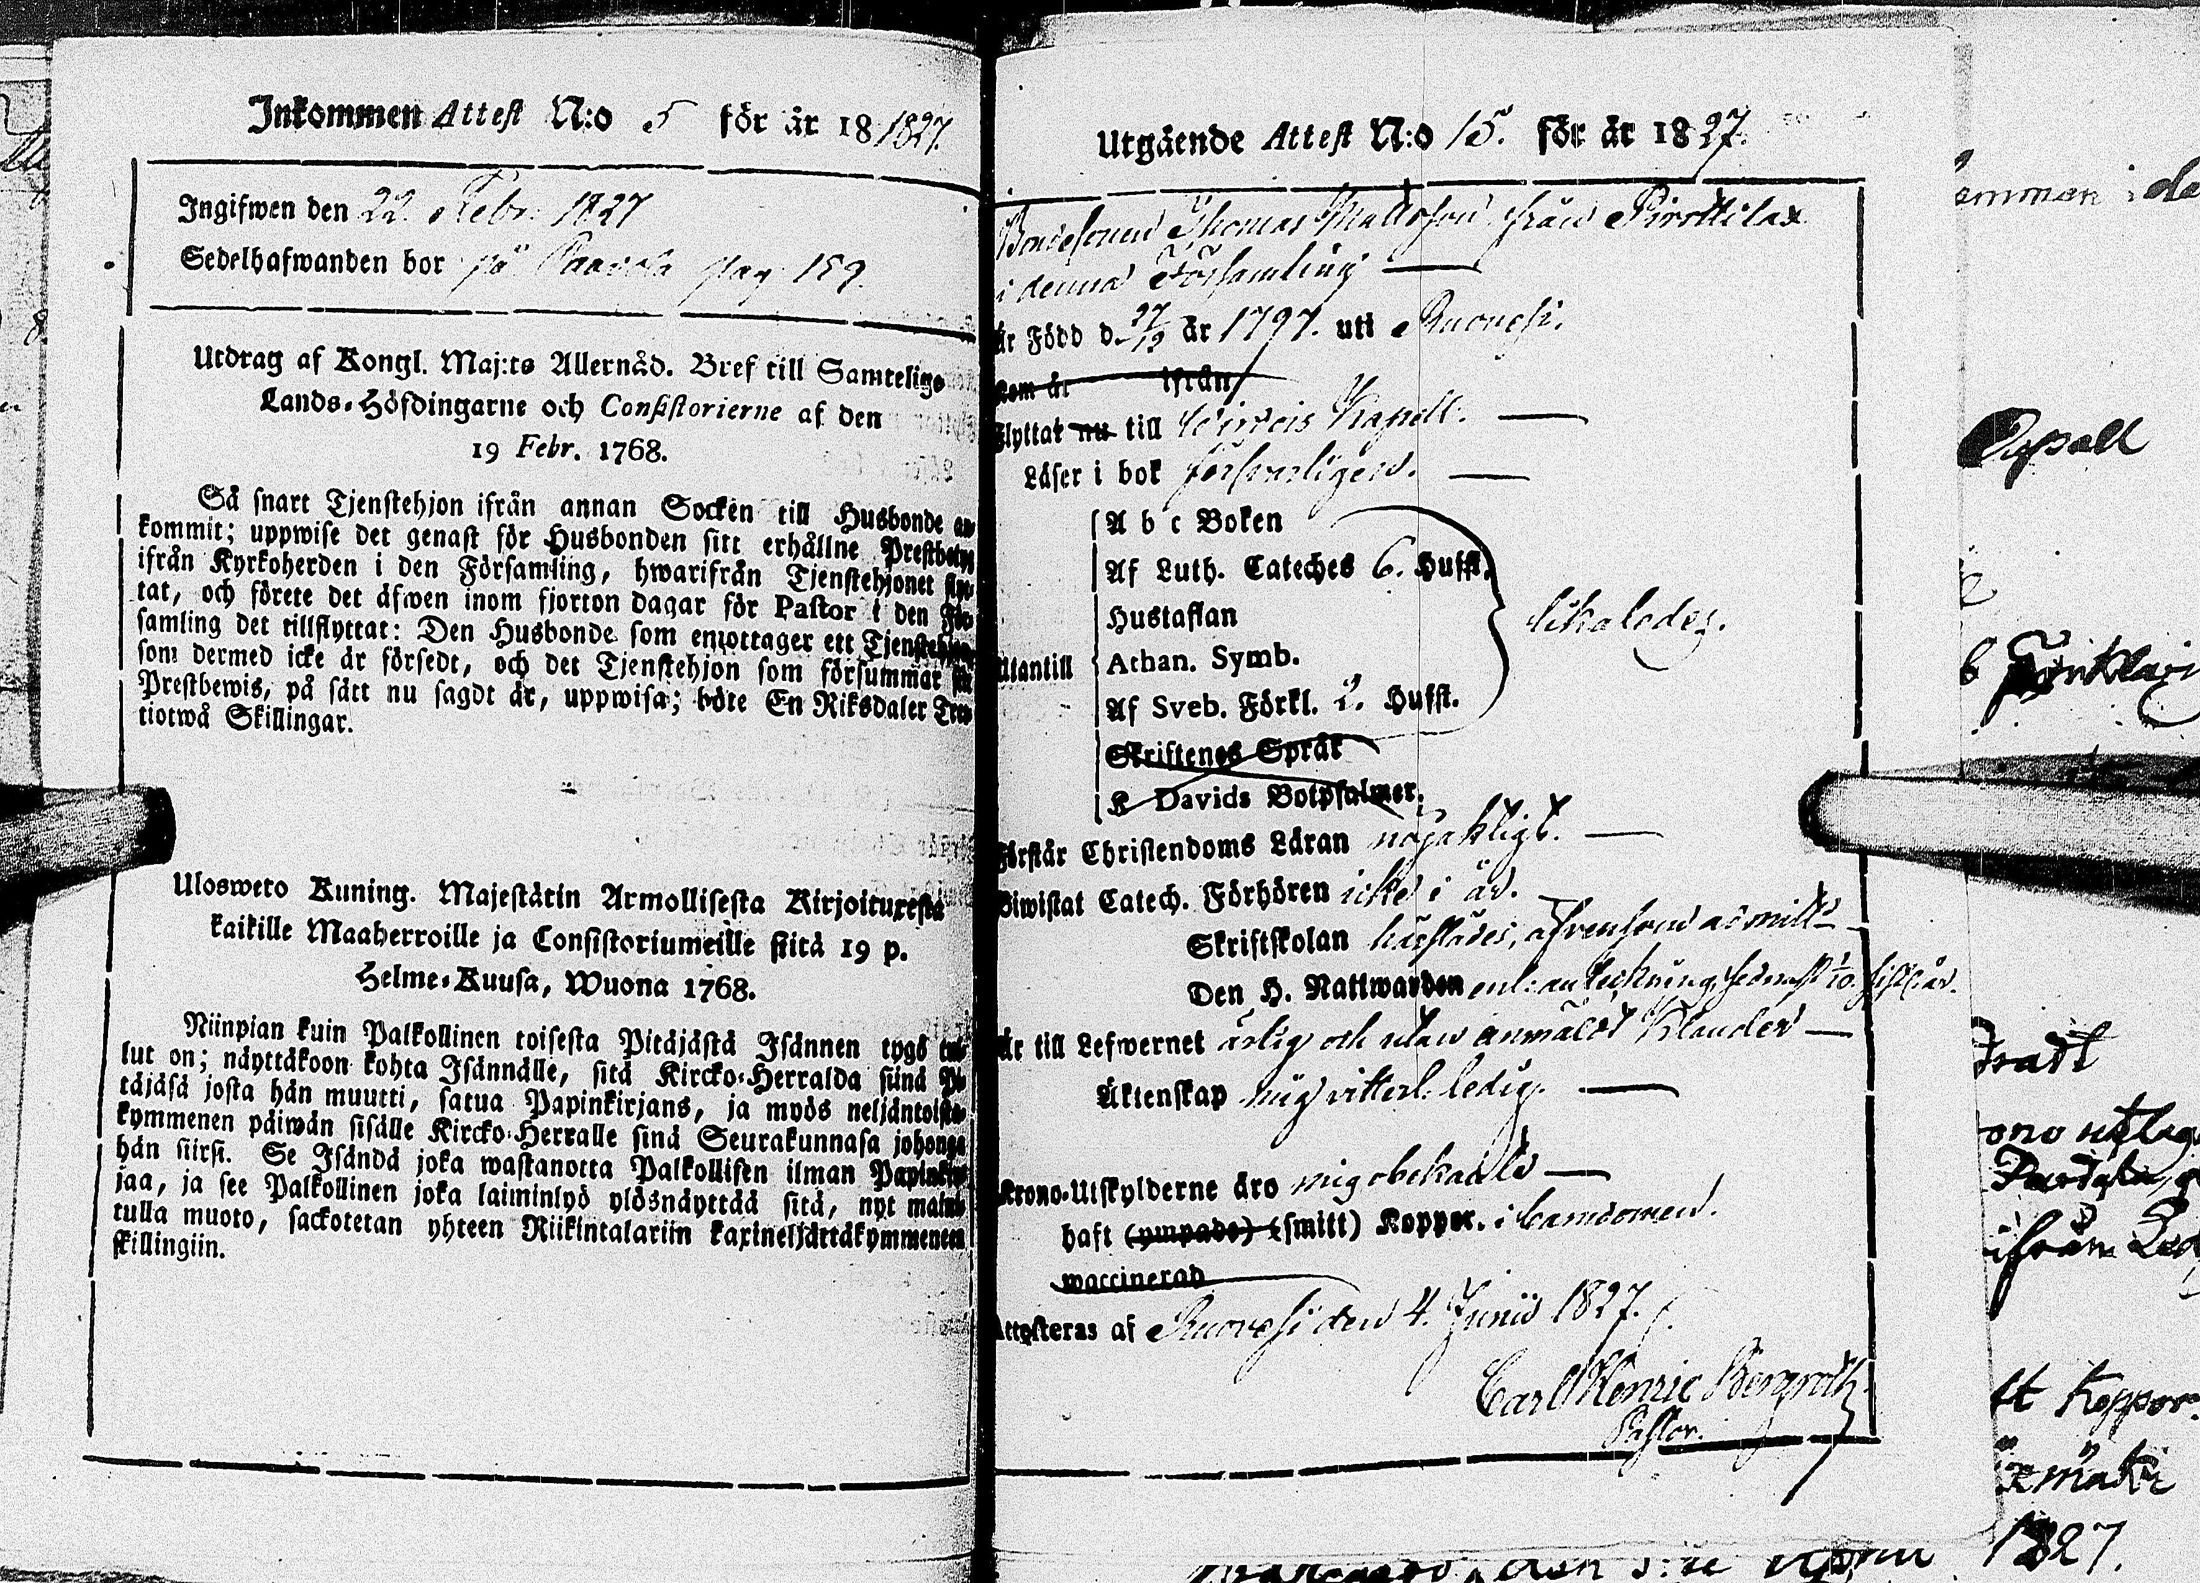 Inkommen Attest N:o 5 för år 18 1827.
Ingifwen den 22 Febr. 1827
Sedelhafwanden bor på Paavola pag 159.
Utdrag af Kongl. Maj:ts Allernåd. Bref till Samtelige
Lands-Höfdingarne och Consistorierne af den
19 Febr. 1768.
Så snart Tjenstehjon ifrån annan Socken till Husbonde an-
kommit; uppwise det genast för Husbonden sitt erhållne Prestbetyg
ifrån Kyrkoherden i den Församling, hwarifrån Tjenstehjonet flyt-
tat, och förete det äfwen inom fjorton dagar för Pastor i den För-
samling det tillflyttat: Den Husbonde som emottager ett Tjenstehjon
som dermed icke är försedt, och det Tjenstehjon som försummar sitt
Prestbewis, på sätt nu sagdt är, uppwisa; böte En Riksdaler Tret-
tiotwå Skillingar.
Ulosweto Kuning. Majestätin Armollisesta Kirjoituxesta
kaikille Maaherroille ja Consistoriumeille siitä 19 p.
Helme-Kuusa, Wuona 1768.
Niinpian kuin Palkollinen toisesta Pitäjästä Isännen tygö tul-
lut on; näyttäkoon kohta Isännälle, sitä Kircko-Herralda siinä Pi-
täjäsä josta hän muutti, satua Papinkirjans, ja myös neljäntoista-
kymmenen päiwän sisälle Kircko-Herralle sinä Seurakunnasa johonga
hän siirsi. Se Isändä joka wastanotta Palkollisen ilman Papinkir-
jaa, ja see Palkollinen joka laiminlyö ylösnäyttää sitä, nyt mainit-
tulla muoto, sackotetan yhteen Riikintalariin kaxineljättäkymmeneen
skillingiin.
Utgående Attest N:o 15. för år 1827.
Bondesonen Thomas Mattsson från Pirttilax
i denna Församling
Är Född d. 27/12 år 1797. uti Ruovesi.
kom år ifrån
Flyttat nu till Virdois Kapell.
Läser i bok försvarligen.
A b c Boken
Af Luth. Cateches 6. Hufst.
Hustaflan
likaledes.
Utantill Athan. Symb.
Af Sveb. Förkl. 2. Hufst.
Skriftenes Språk
K Davids Botpsalmer.
Förstår Christendoms Läran nöjaktigt.
Biwistat Catech. Förhören icke i år.
Skriftskolan härstädes, äfvensom admitt:
Den H. Nattwarden enl: anteckning sednast 1/10. sistl: år.
Är till Lefwernet ärlig och utan anmäldt klander
Äktenskap mig vitterl: ledig.
Krono-Utskylderne äro mig obekante
haft (ympade) (smitt) Koppor. i barndomen.
waccinerad
Attesteras af Ruovesi den 4. Junii 1827.
Carl Henric Bergroth
Pastor.
Kapell
6 Förklari
ifrån
Koppor
1827.